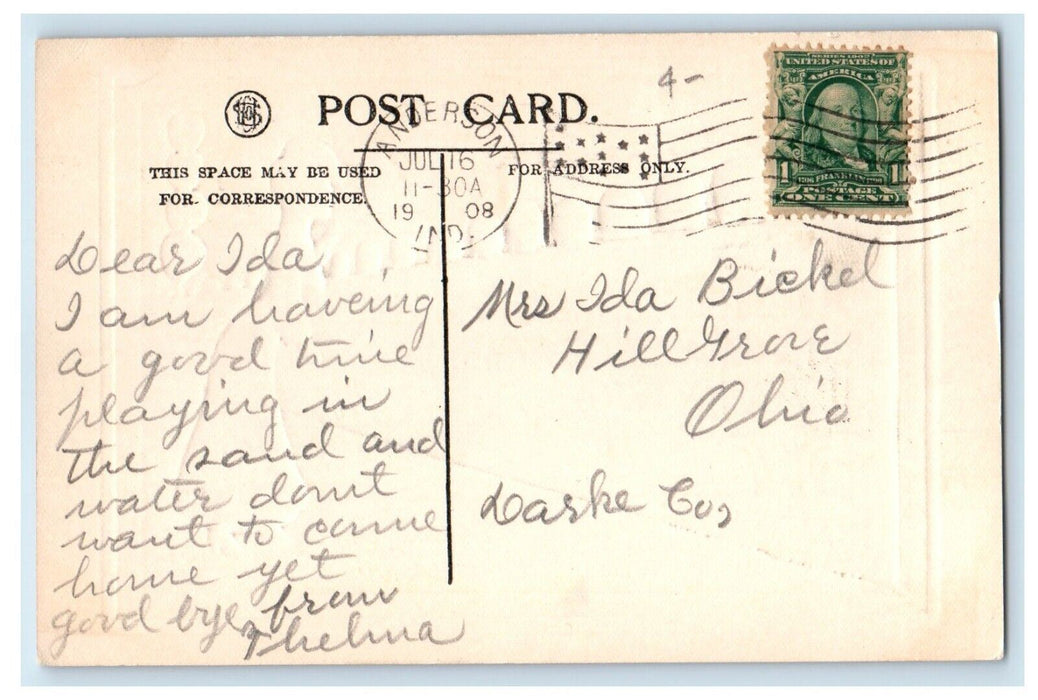 4-
POST CARD.
THIS SPACE MAY BE USED
FOR CORRESPONDENCE.
FOR ADDRESS ONLY.
ANDERSON
JUL 16
11-30A
19 08
IND.
SERIES 1902
UNITED STATES OF
AMERICA
1 1
FRANKLIN
POSTAGE
ONE CENT
Dear Ida.
I am haveing
a good time
playing in
the sand and
water dont
want to come
home yet
good bye from
Thelma
Mrs Ida Bickel
Hill Grove
Ohio
Darke Co,